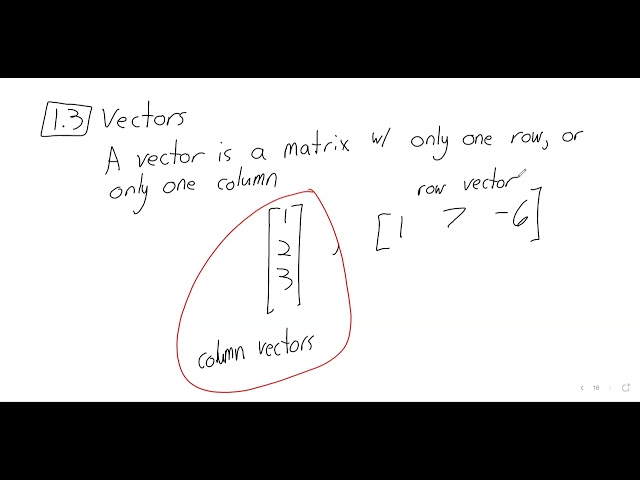 1.3 Vectors
A vector is a matrix w/ only one row, or
only one column
row vector
[1 7 -6]
[1
2
3]
,
column vectors
16